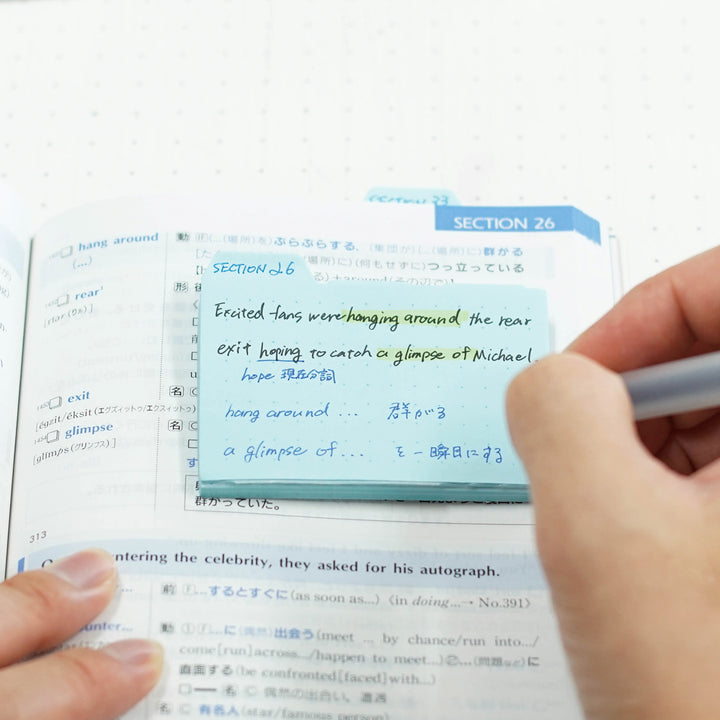 SECTION 26
hang around
(...)
動 (...(場所)を)ぶらぶらする, (集団が)(...(場所)に)群がる
(場所)に)(何もせずに)つっ立っている
rear
形
SECTION 26
Excited fans were hanging around the rear
exit hoping to catch a glimpse of Michael.
hope 現在分詞
hang around ... 群がる
a glimpse of ... を一瞬目にする
exit
名
[égzit/éksit(エグズィットゥ/エクスィットゥ)
glimpse
名
[glímps(グリンプス)]
群がっていた。
313
ntering the celebrity, they asked for his autograph.
前 ...するとすぐに(as soon as...) 〈in doing...→ No.391〉
unter...
動 ① ...に(偶然)出会う(meet ... by chance/run into.../
come[run]across.../happen to meet...)②...(問題など)に
直面する(be confronted[faced]with...)
名 偶然の出会い, 遭遇
名 有名人(star/famous person)